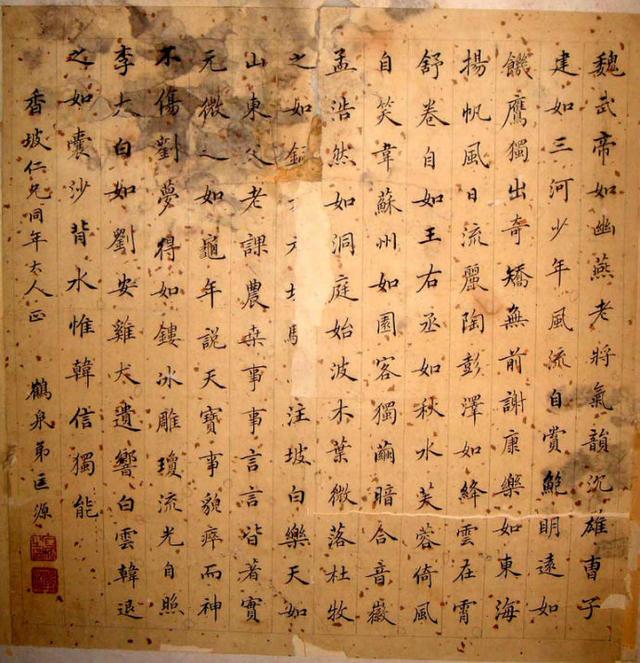 魏武帝如幽燕老將氣韻沉雄曹子
建如三河少年風流自賞鮑明遠如
饑鷹獨出奇矯無前謝康樂如東海
揚帆風日流麗陶彭澤如絳雲在霄
舒卷自如王右丞如秋水芙蓉倚風
自笑韋蘇州如園客獨繭暗合音徽
孟浩然如洞庭始波木葉微落杜牧
之如注坡白樂天如
山東父老課農桑事事言言皆著實
元微之如龜年說天寶事貌瘁而神
不傷劉夢得如鏤冰雕瓊流光自照
李太白如劉安雞犬遺響白雲韓退
之如囊沙背水惟韓信獨能
香坡仁兄同年大人正
鶴泉弟匡源